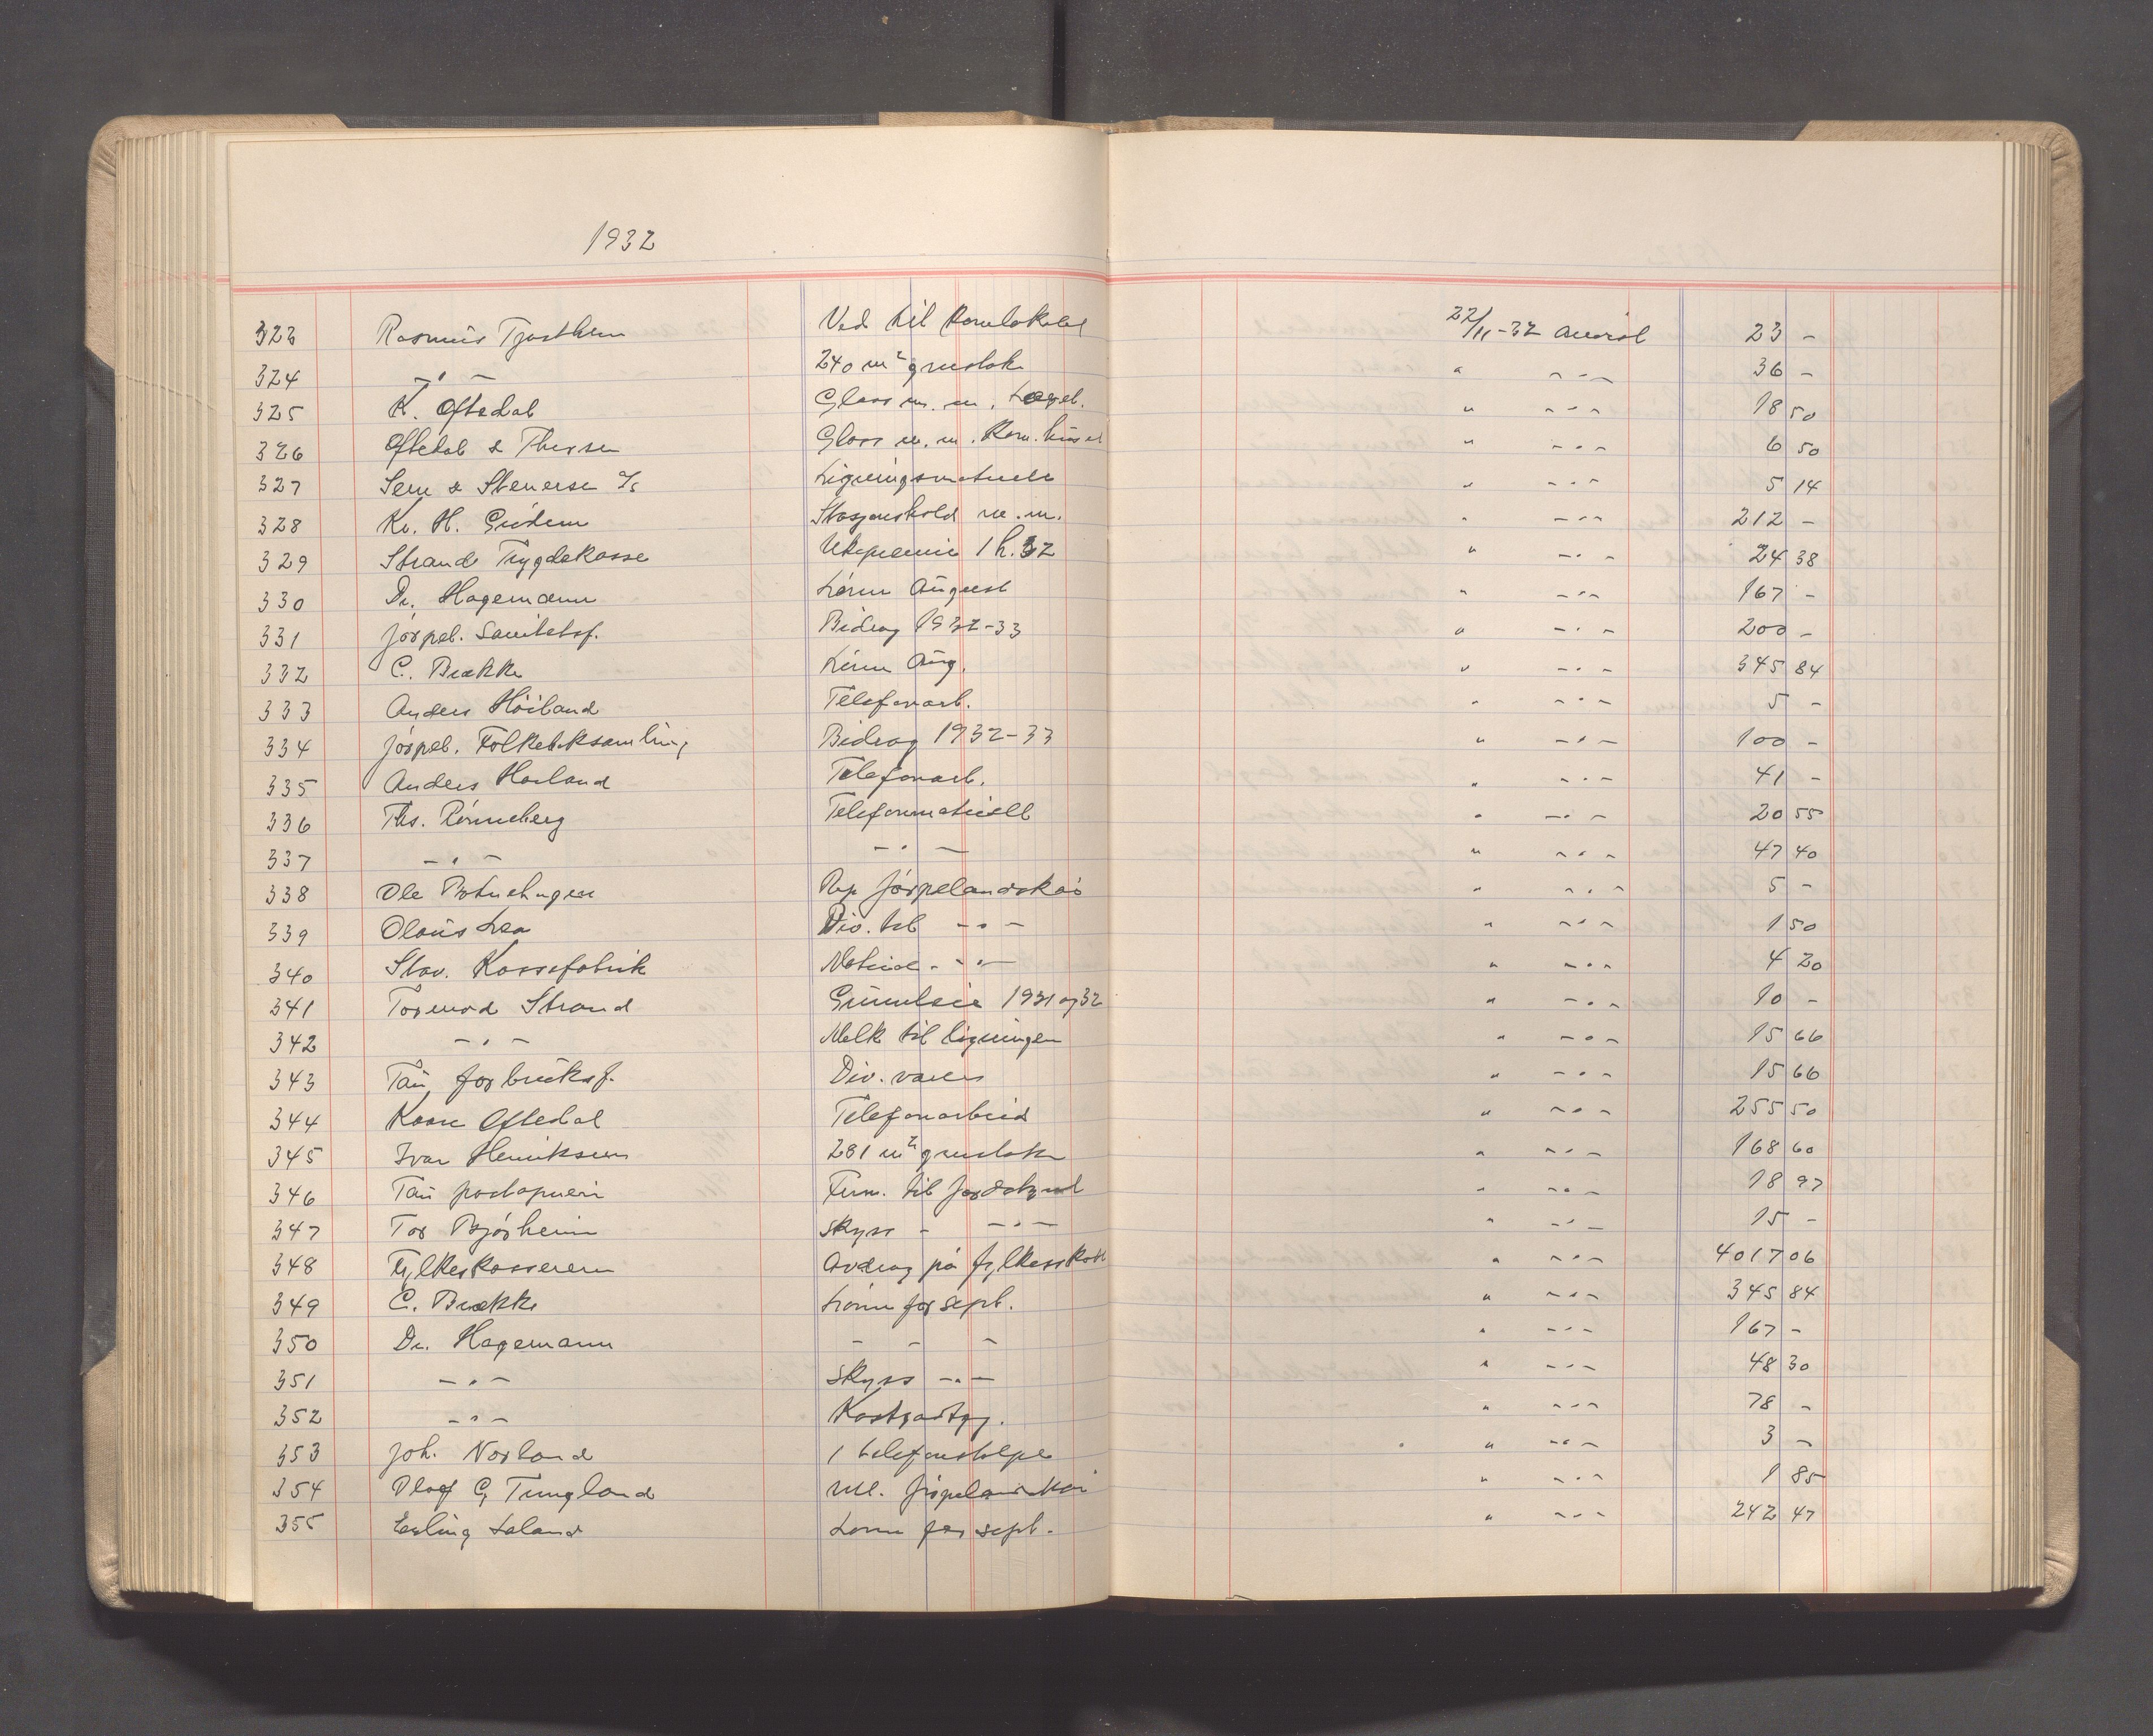 1932
323 Rasmus Tjostheim Ved til komlokalet 22/11-32 Anvist 23 -
324 -"- 240 m² gruslok " -"- 36 -
325 K. Oftedal Glass m. m. " -"- 18 50
326 Oftedal & Thersen Glass m. m. Kom. huset " -"- 6 50
327 Sem & Stenersen A/S Ligningsmateriell " -"- 5 14
328 Kr. H. Stasjonshold m. m. " -"- 212 -
329 Strand Trygdekasse Utepremie 1 h. 32 " -"- 24 38
330 Dr. Hagemann Lønn August " -"- 167 -
331 Jørpel. Sanitetsf. Bidrag 1932-33 " -"- 200 -
332 C. Brekke Lønn Aug. " -"- 345 84
333 Anders Høiland Telefonarb. " -"- 5 -
334 Jørpel. Folkeboksamling Bidrag 1932-33 " -"- 100 -
335 Anders Høiland Telefonarb. " -"- 41 -
336 Ths. Rønneberg Telefonmateriell " -"- 20 55
337 -"- -"- " -"- 47 40
338 Ole Botnehagen Rep Jørpelandskai " -"- 5 -
339 Olaus Lea Div. til -"- " -"- 1 50
340 Stav. Kassefabrik Materiel -"- " -"- 4 20
341 Tormod Strand Grunnleie 1931 og 32 " -"- 10 -
342 -"- Melk til ligningen " -"- 15 66
343 Tau forbruksf. Div. varer " -"- 15 66
344 Kaare Oftedal Telefonarbeid " -"- 255 50
345 Ivar Henriksen 281 m² gruslok " -"- 168 60
346 Tau postopneri Frim. til jordstyret " -"- 18 97
347 Tor Bjørheim Skyss - -"- " -"- 15 -
348 Fylkeskassereren Avdrag på fylkesskatt " -"- 4017 06
349 C. Brekke Lønn for sept. " -"- 345 84
350 Dr. Hagemann - - - " -"- 167 -
351 -"- Skyss -"- " -"- 48 30
352 -"- Kostgodtgj. " -"- 78 -
353 Joh. Norland 1 telefonstolpe " -"- 3 -
354 Olaf G. Tungland Jørpelandskai " -"- 1 85
355 Erling Laland Lønn for sept. " -"- 242 47